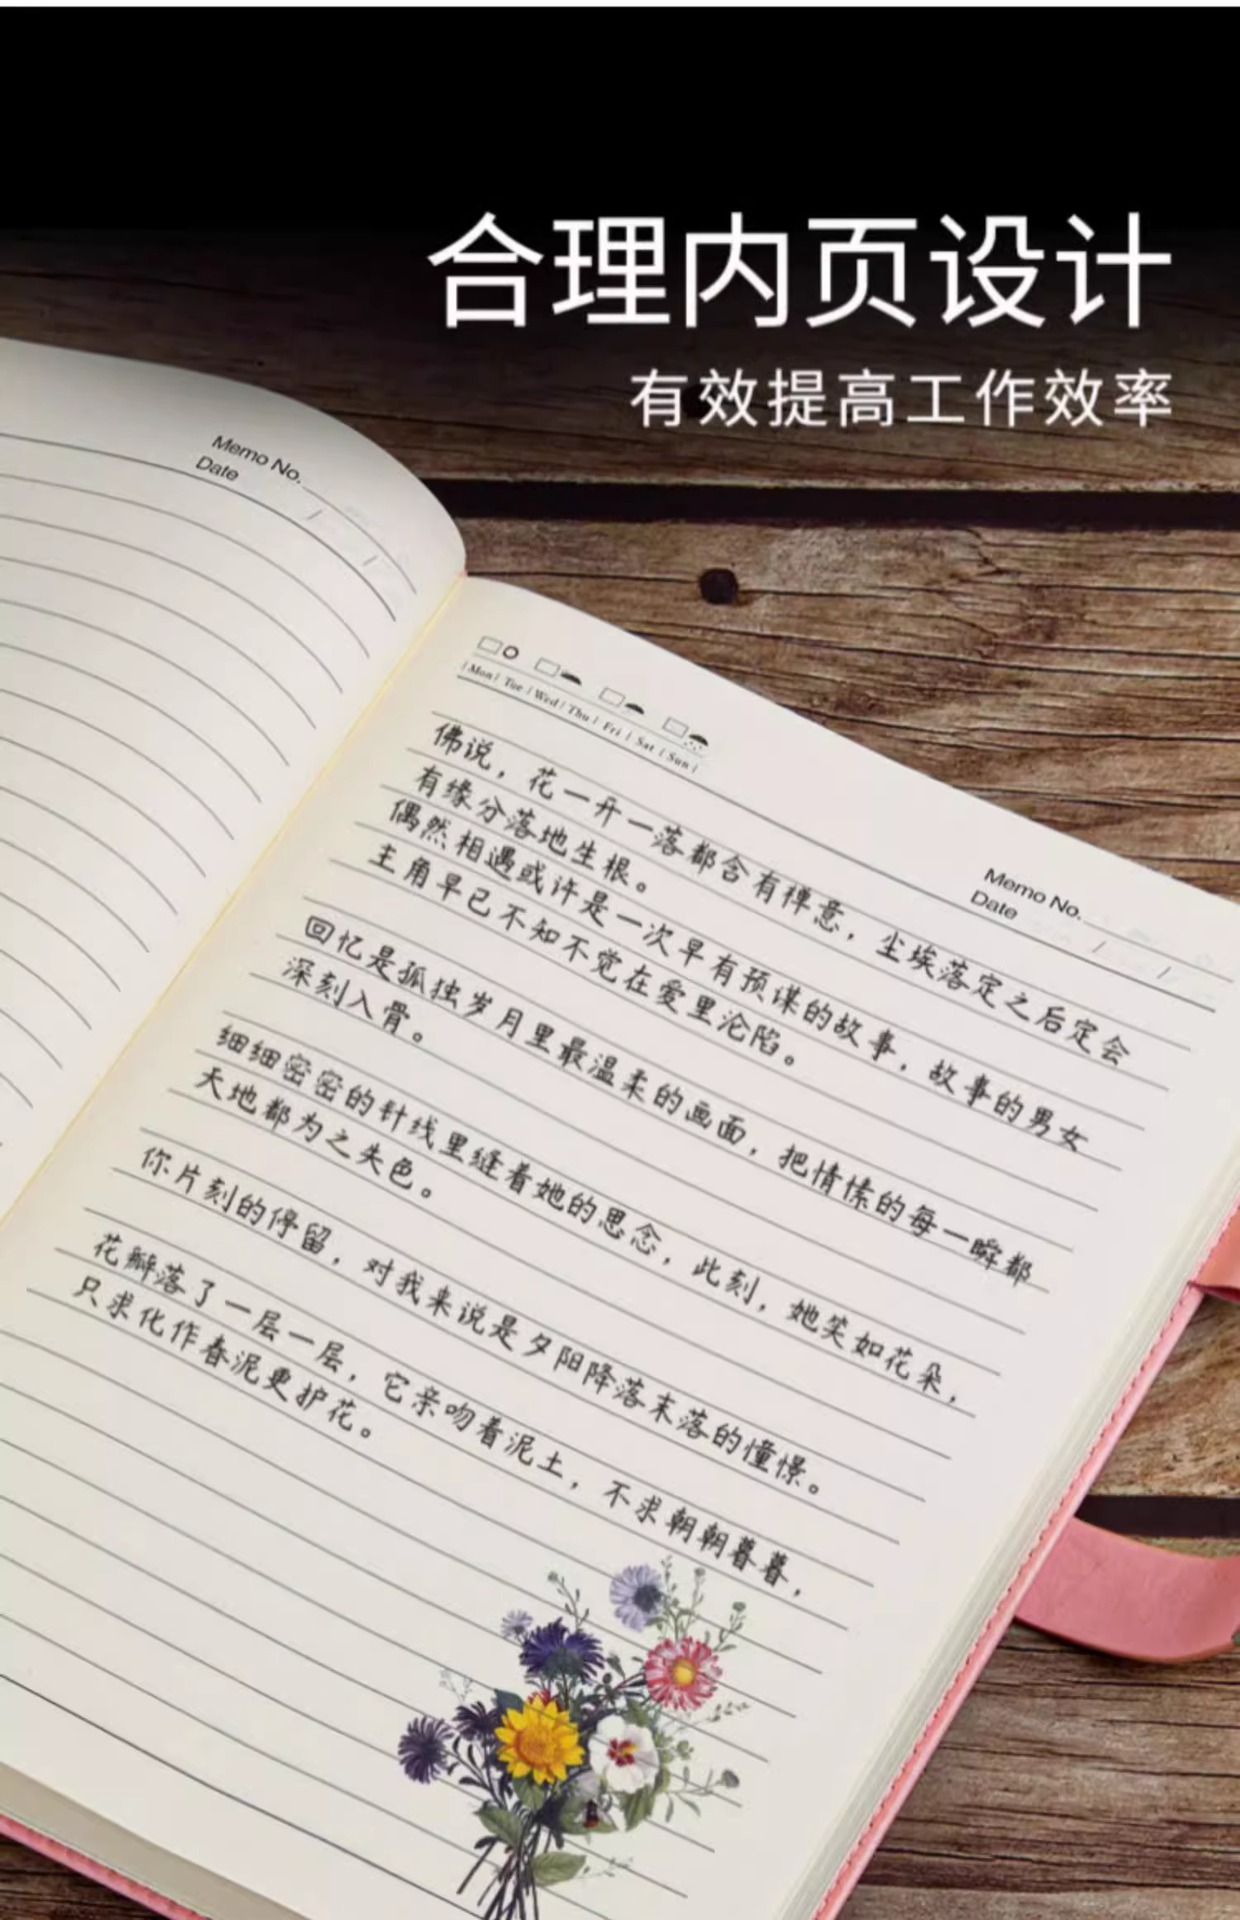 合理内页设计
有效提高工作效率
Memo No.
Date / /
Mon / Tue / Wed / Thu / Fri / Sat / Sun /
Memo No.
Date / /
佛说，花一开一落都含有禅意，尘埃落定之后定会
有缘分落地生根。
偶然相遇或许是一次早有预谋的故事，故事的男女
主角早已不知不觉在爱里沦陷。
回忆是孤独岁月里最温柔的画面，把情愫的每一瞬都
深刻入骨。
细细密密的针线里缝着她的思念，此刻，她笑如花朵，
天地都为之失色。
你片刻的停留，对我来说是夕阳降落末落的憧憬。
花瓣落了一层一层，它亲吻着泥土，不求朝朝暮暮，
只求化作春泥更护花。